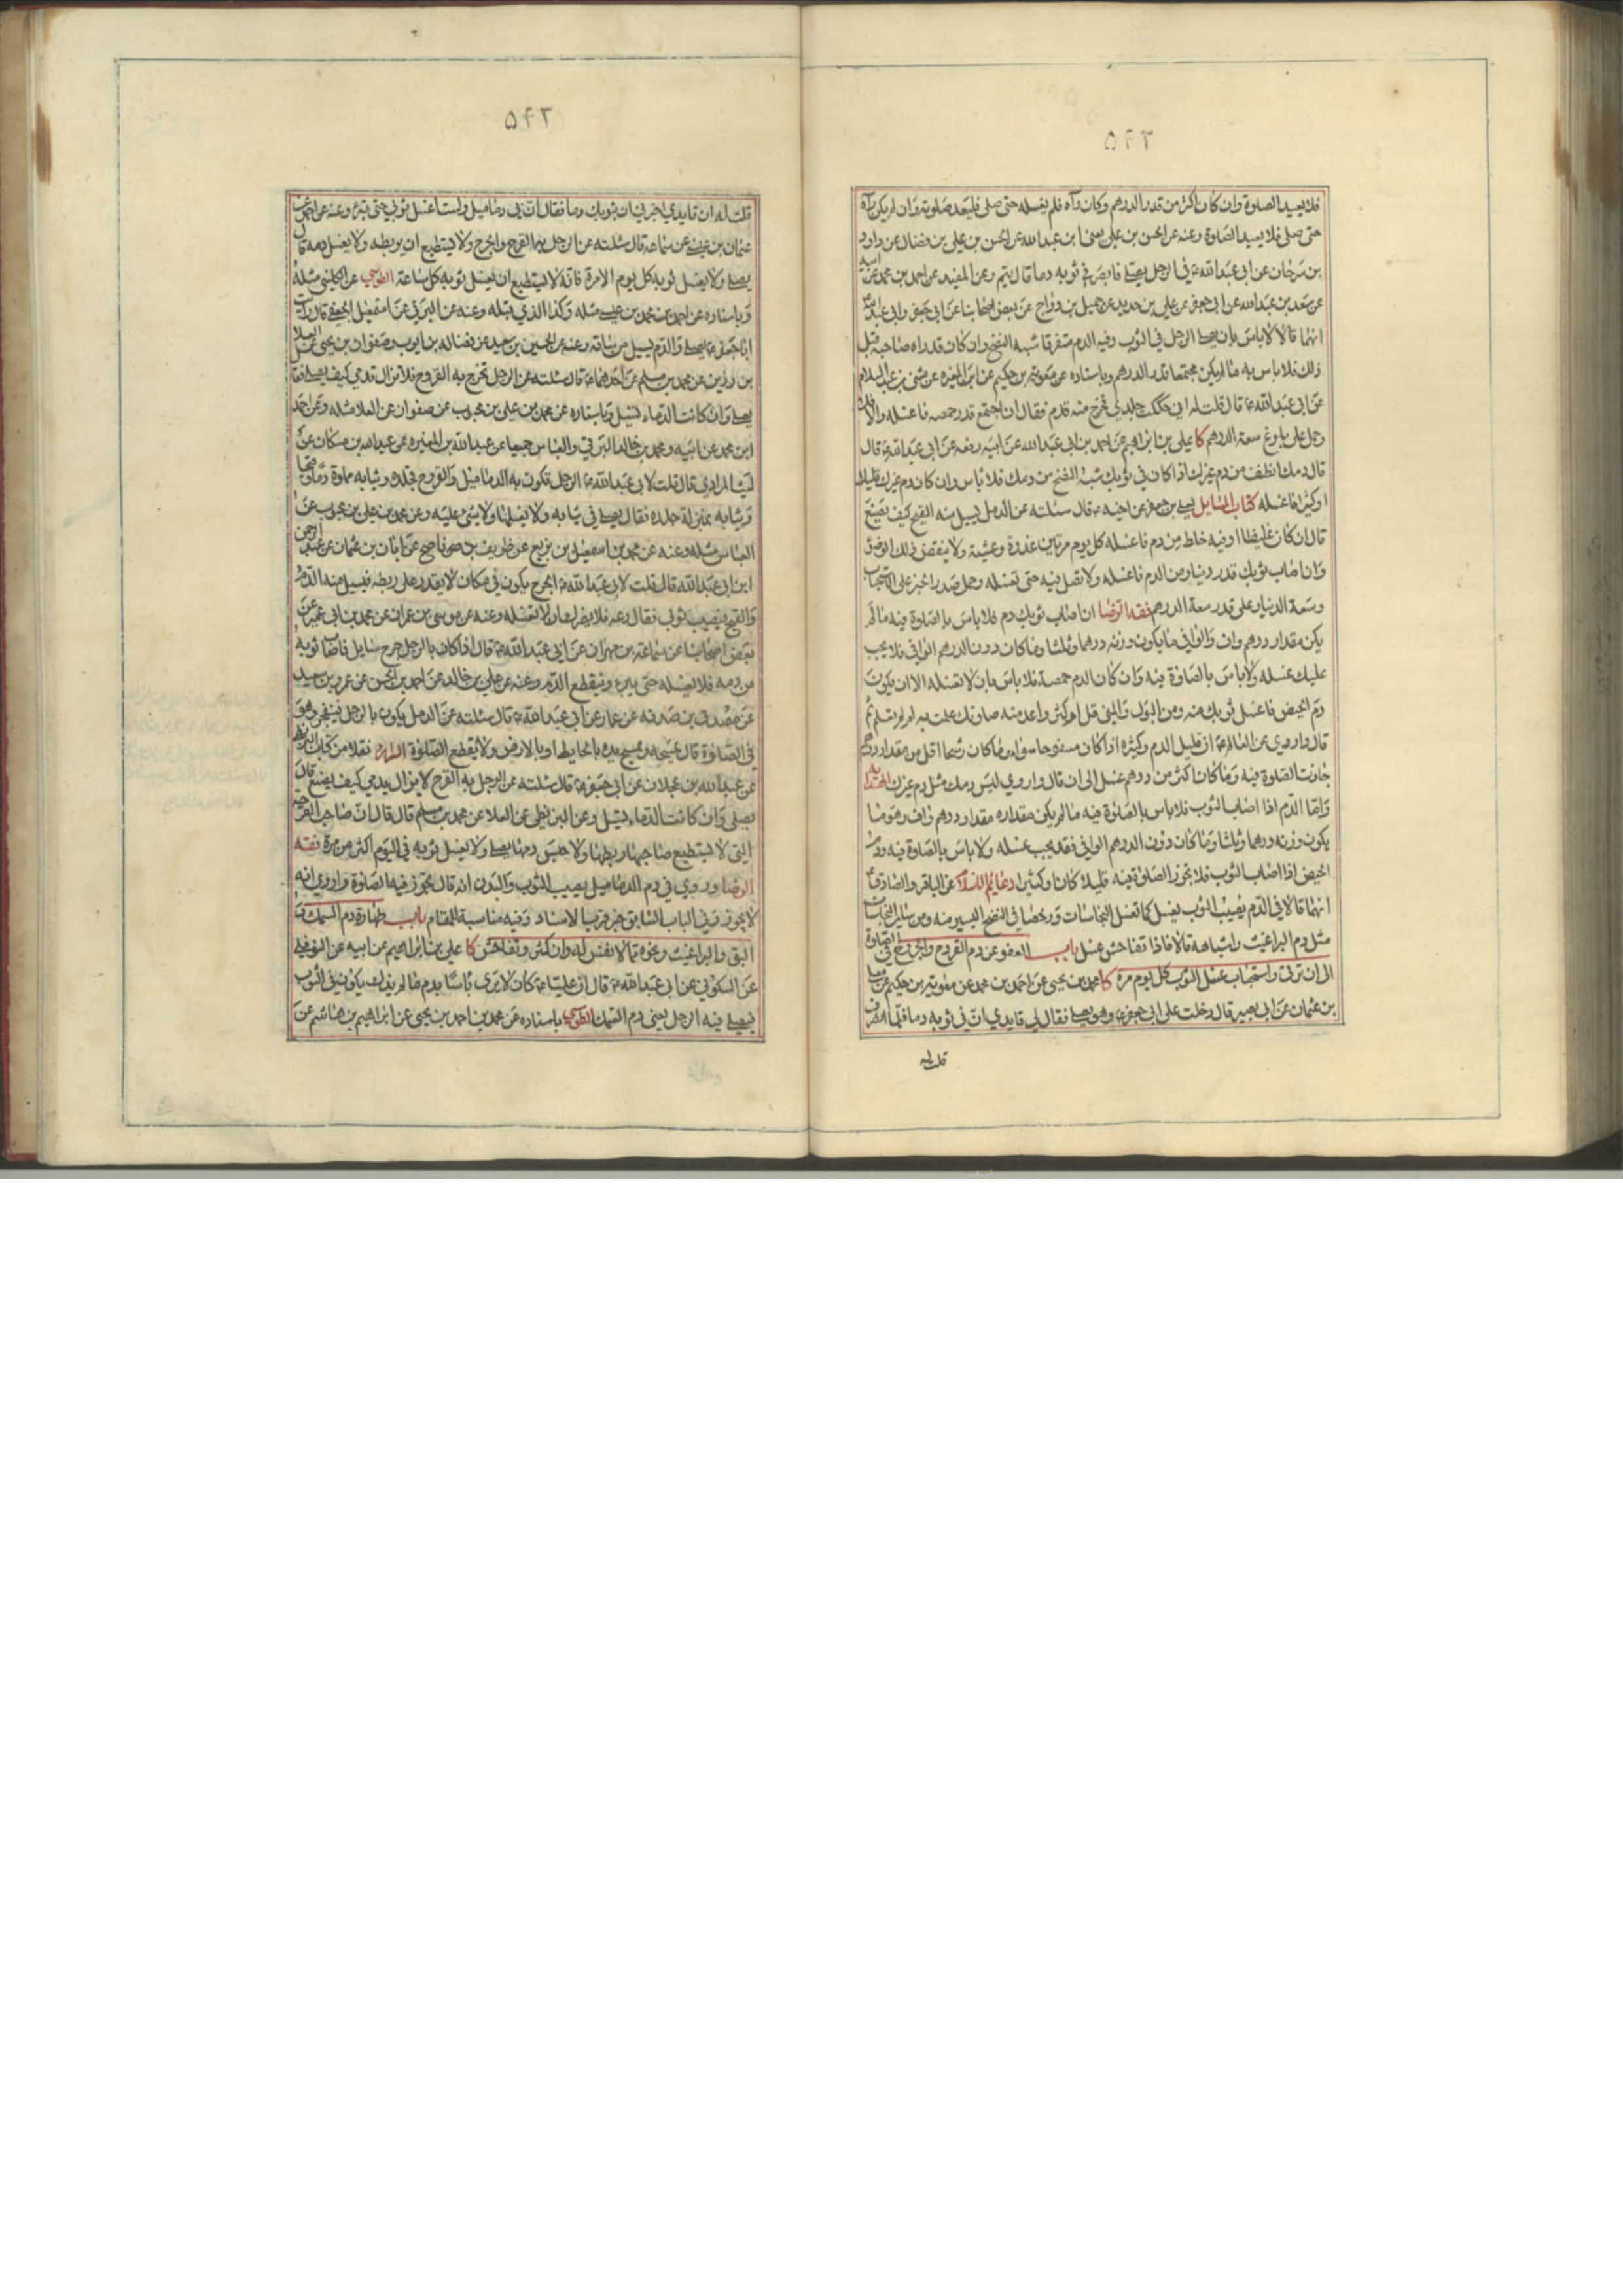 ٥٤٣
فلا يعيد الصلوة وان كان اكثر من قدر الدرهم وكان رآه فلم يغسله حتى صلى فليعد صلوته وان لم يكن رآه
حتى صلى فلا يعيد الصلوة وعنه عن الحسن بن علي يعني ابن عبد الله عن الحسن بن علي بن فضال عن داود
بن سرحان عن ابي عبد الله ع في الرجل يصلي فابصر في ثوبه دما قال يتم وعن المفيد عن احمد بن محمد عن ابيه
عن سعد بن عبد الله عن ابي جعفر عن علي بن حديد عن جميل بن دراج عن بعض اصحابنا عن ابي جعفر وابي عبد الله ع
انهما قالا لا باس بان يصلي الرجل في الثوب وفيه الدم متفرقا شبه النضح وان كان قد راه صاحبه قبل
ذلك فلا باس به ما لم يكن مجتمعا قدر الدرهم وباسناده عن معوية بن حكيم عن ابن المغيره عن مثنى بن عبد السلام
عن ابي عبد الله ع قال قلت له اني حككت جلدي فخرج منه فدم فقال ان اجتمع قدر حمصه فاغسله والا فلا
وحمل على بلوغ سعة الدرهم كا علي بن ابراهيم عن احمد بن ابي عبد الله عن ابيه رفعه عن ابي عبد الله ع قال
قال دمك انظف من دم غيرك اذا كان في ثوبك شبه النضح من دمك فلا باس وان كان دم غيرك قليلا
او كثيرا فاغسله كتاب المسايل لعلي بن جعفر عن اخيه ع قال سئلته عن الدمل يسيل منه القيح كيف يصنع
قال ان كان غليظا او فيه خلط من دم فاغسله كل يوم مرتين غدوة وعشية ولا ينقض ذلك الوضوء
وان اصاب ثوبك قدر دينار من الدم فاغسله ولا تصل فيه حتى تغسله وحمل صدر الخبر على الاستحباب
وسعة الدينار على قدر سعة الدرهم فقه الرضا ان اصاب ثوبك دم فلا باس بالصلوة فيه ما لم
يكن مقدار درهم واف والوافي ما يكون وزنه درهما وثلثا وما كان دون الدرهم الوافي فلا يجب
عليك غسله ولا باس بالصلوة فيه وان كان الدم حمصة فلا باس بان لا تغسله الا ان يكون
دم الحيض فاغسل ثوبك منه ومن البول والمني قل ام كثر واعد منه صلوتك علمت به ام لم تعلم ثم
قال واروي عن العالم ع ان قليل الدم وكثيره اذا كان مسفوحا سواء وما كان رشحا اقل من مقدار درهم
جازت الصلوة فيه وما كان اكثر من درهم غسل الى ان قال واروي ليس دمك مثل دم غيرك الهداية
واما الدم اذا اصاب الثوب فلا باس بالصلوة فيه ما لم يكن مقداره مقدار درهم واف وهو ما
يكون وزنه درهما وثلثا وما كان دون الدرهم الوافي فقد يجب غسله ولا باس بالصلوة فيه ودم
الحيض اذا اصاب الثوب فلا تجوز الصلوة فيه قليلا كان او كثيرا دعايم الاسلام عن الباقر والصادق ع
انهما قالا في الدم يصيب الثوب يغسل كما تغسل النجاسات ورخصا في النضح اليسير منه ومن ساير النجاسات
مثل دم البراغيث واشباهه قالا فاذا تفاحش غسل باب العفو عن دم القروح والجروح في الصلوة
الى ان ترقى واستحباب غسل الثوب كل يوم مرة كا محمد بن يحيى عن احمد بن محمد عن معوية بن حكيم عن معلى
بن عثمان عن ابي بصير قال دخلت على ابي جعفر ع وهو يصلي فقال لي قايدي ان في ثوبه دما فلما انصرف
قلت له
٥٤٢
قلت له ان قايدي اخبرني ان بثوبك دما فقال ان بي دماميل ولست اغسل ثوبي حتى تبرء وعنه عن احمد عن
عثمان بن عيسى عن سماعة قال سئلته عن الرجل به القرح والجرح ولا يستطيع ان يربطه ولا يغسل دمه قال
يصلي ولا يغسل ثوبه كل يوم الا مرة فانه لا يستطيع ان يغسل ثوبه كل ساعة الطوسي عن الكليني مثله
وباسناده عن احمد بن محمد بن عيسى مثله وكذا الذي قبله وعنه عن البرقي عن اسمعيل الجعفي قال رايت
ابا جعفر ع يصلي والدم يسيل من ساقه وعنه عن الحسين بن سعيد عن فضاله بن ايوب وصفوان بن يحيى عن العلا
بن رزين عن محمد بن مسلم عن احدهما ع قال سئلته عن الرجل تخرج به القروح فلا تزال تدمي كيف يصلي فقال
يصلي وان كانت الدماء تسيل وباسناده عن محمد بن علي بن محبوب عن صفوان عن العلا مثله وعن احمد
ابن محمد عن ابيه ومحمد بن خالد البرقي والعباس جميعا عن عبد الله بن المغيره عن عبد الله بن مسكان عن
ليث المرادي قال قلت لابي عبد الله ع الرجل تكون به الدماميل والقروح فجلده وثيابه مملوة دما وقيحا
وثيابه بمنزلة جلده فقال يصلي في ثيابه ولا يغسلها ولا شيء عليه وعن محمد بن علي بن محبوب عن
العباس مثله وعنه عن محمد بن اسمعيل بن بزيع عن ظريف بن ناصح عن ابان بن عثمان عن عبد الرحمن
ابن ابي عبد الله قال قلت لابي عبد الله ع الجرح يكون في مكان لا يقدر على ربطه فيسيل منه الدم
والقيح فيصيب ثوبي فقال دعه فلا يضرك ان لا تغسله وعنه عن موسى بن عمران عن محمد بن ابي عمير عن
بعض اصحابنا عن سماعة بن مهران عن ابي عبد الله ع قال اذا كان بالرجل جرح سايل فاصاب ثوبه
من دمه فلا يغسله حتى يبرء وينقطع الدم وعنه عن علي بن خالد عن احمد بن الحسن عن عمرو بن سعيد
عن مصدق بن صدقه عن عمار عن ابي عبد الله ع قال سئلته عن الدمل يكون بالرجل فينفجر وهو
في الصلوة قال يمسحه ويمسح يده بالحايط او بالارض ولا يقطع الصلوة السرائر نقلا من كتاب البزنطي
عن عبد الله بن عجلان عن ابي جعفر ع قال سئلته عن الرجل به القرح لا يزال يدمي كيف يصنع قال
يصلي وان كانت الدماء تسيل وعن البزنطي عن العلا عن محمد بن مسلم قال قال ان صاحب القرحة
التي لا يستطيع صاحبها ربطها ولا حبس دمها يصلي ولا يغسل ثوبه في اليوم اكثر من مرة فقه
الرضا وروي في دم الدماميل يصيب الثوب والبدن انه قال يجوز فيه الصلوة واروي انه
لا يجوز وفي الباب السابق خبر قرب الاسناد وفيه مناسبة للمقام باب طهارة دم السمك و
البق والبراغيث ونحوه مما لا نفس له وان كثر وتفاحش كا علي بن ابراهيم عن ابيه عن النوفلي
عن السكوني عن ابي عبد الله ع قال ان عليا ع كان لا يرى باسا بدم ما لم يذك يكون في الثوب
فيصلي فيه الرجل يعني دم السمك الطوسي باسناده عن محمد بن احمد بن يحيى عن ابراهيم بن هاشم عن